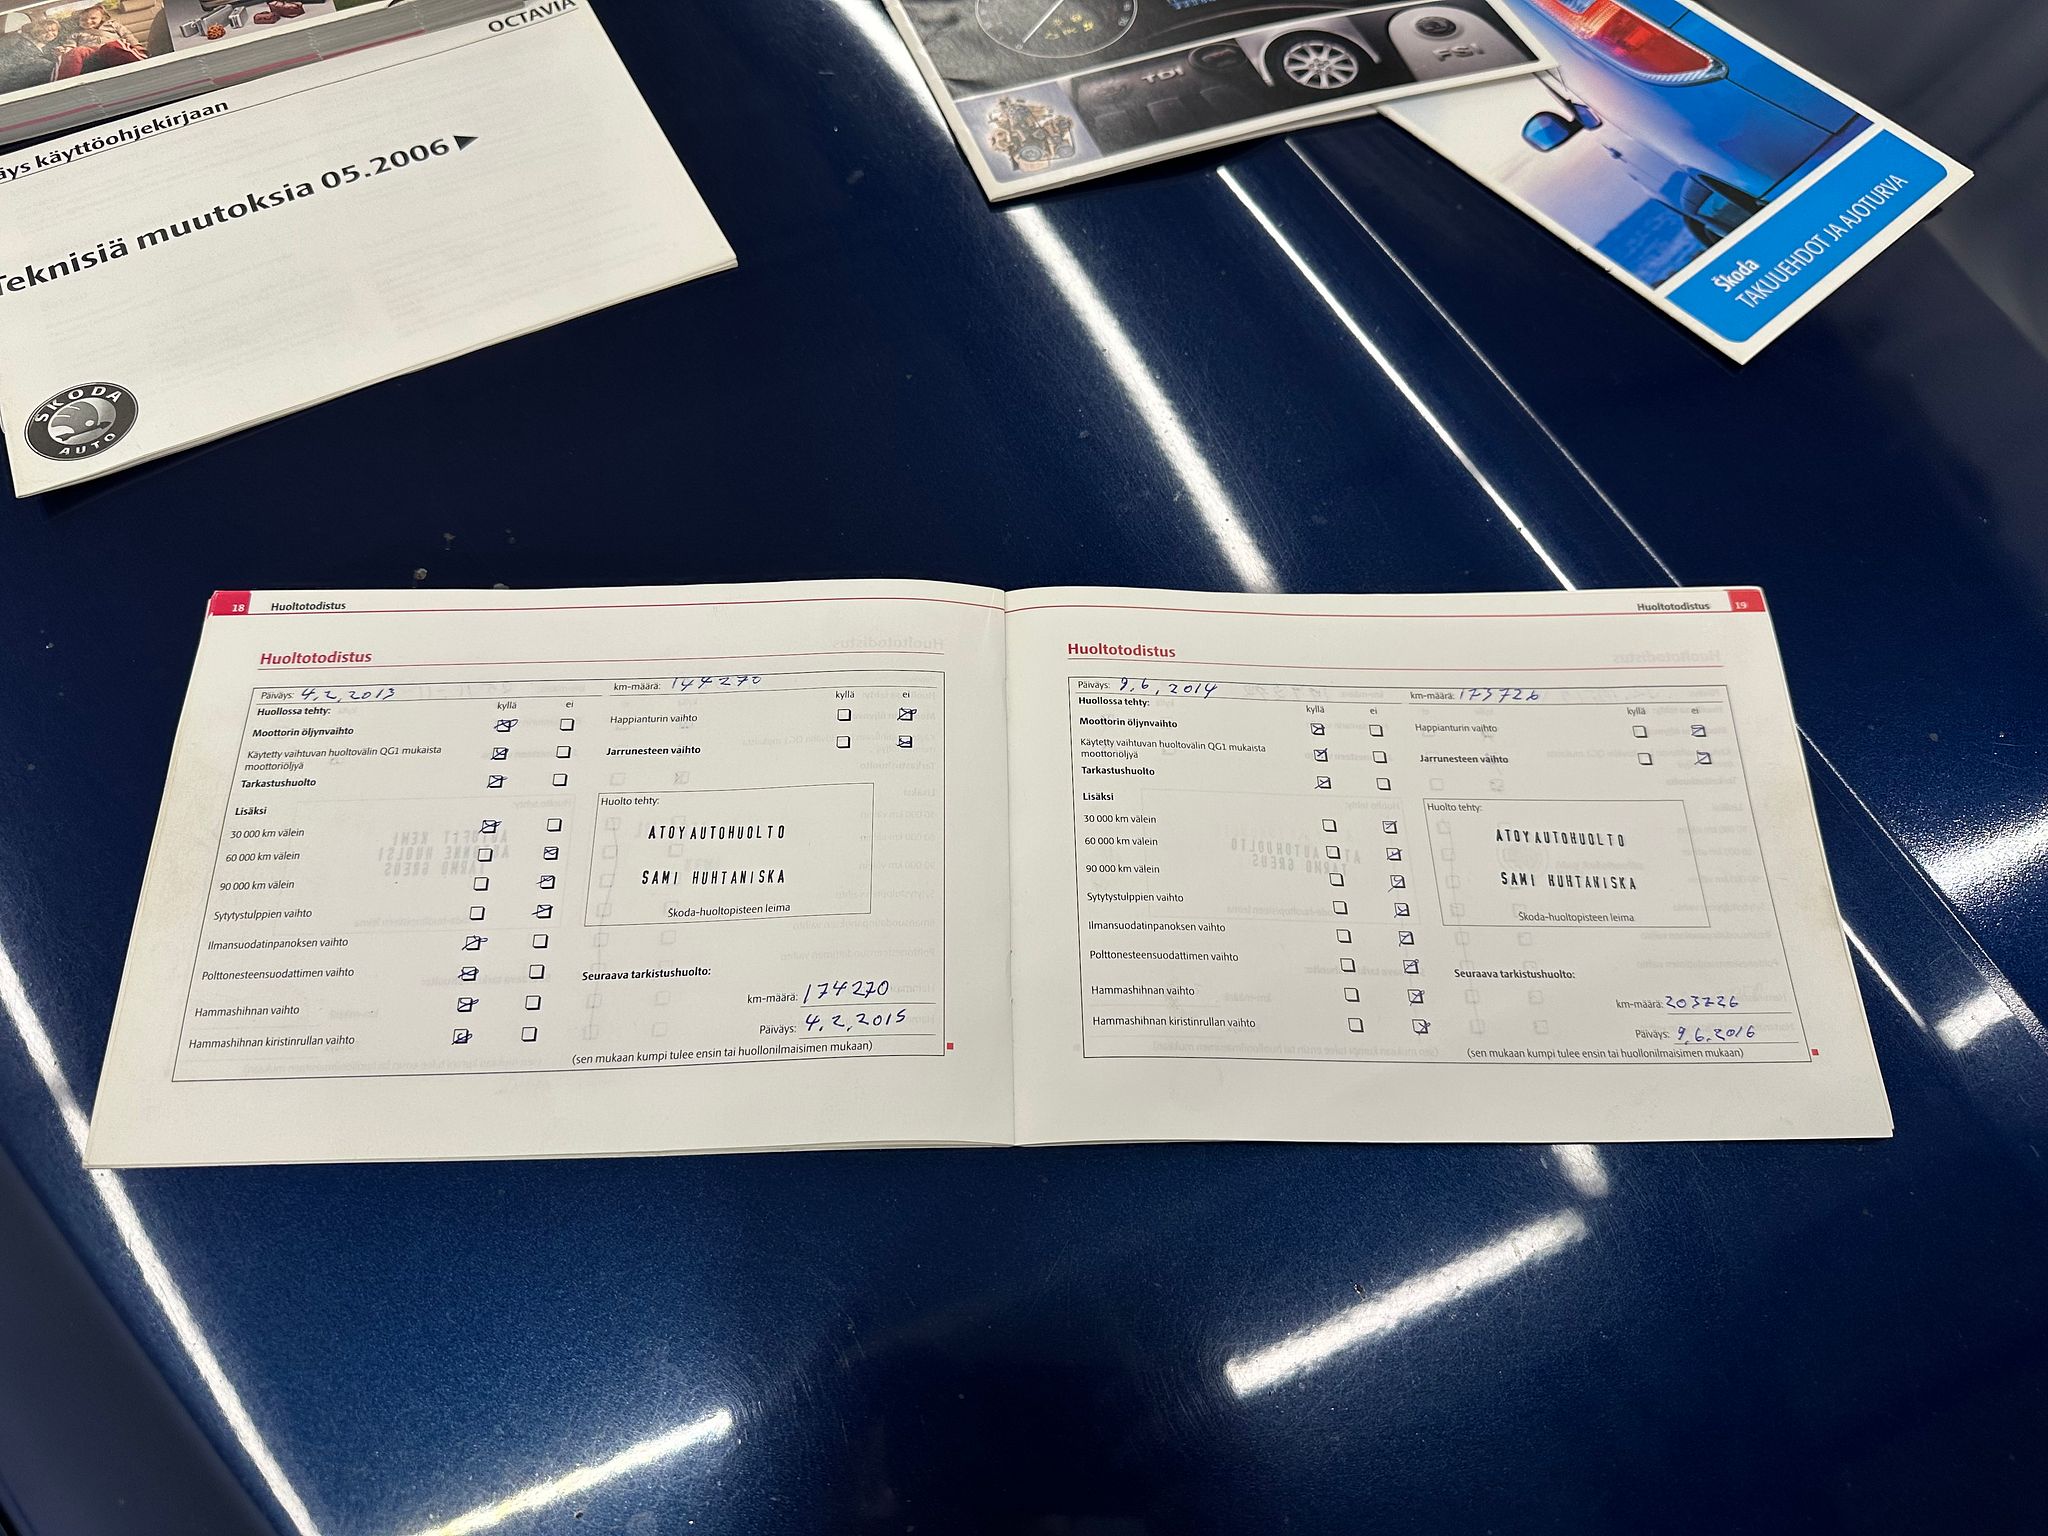 OCTAVIA
käyttöohjekirjaan
Teknisiä muutoksia 05.2006
SKODA
AUTO
TDI
FSI
Škoda
TAKUUEHDOT JA AJOTURVA
18 Huoltotodistus
Huoltotodistus
Päiväys: 4.2.2013 km-määrä: 144270
Huollossa tehty: kyllä ei kyllä ei
Moottorin öljynvaihto
Happianturin vaihto
Käytetty vaihtuvan huoltovälin QG1 mukaista
moottoriöljyä
Jarrunesteen vaihto
Tarkastushuolto
Lisäksi
30 000 km välein
60 000 km välein
90 000 km välein
Sytytystulppien vaihto
Ilmansuodatinpanoksen vaihto
Polttonesteensuodattimen vaihto
Hammashihnan vaihto
Hammashihnan kiristinrullan vaihto
Huolto tehty:
ATOYAUTOHUOLTO
SAMI HUHTANISKA
Škoda-huoltopisteen leima
Seuraava tarkistushuolto:
km-määrä: 174270
Päiväys: 4.2.2015
(sen mukaan kumpi tulee ensin tai huollonilmaisimen mukaan)
Huoltotodistus 19
Huoltotodistus
Päiväys: 9.6.2014 km-määrä: 173726
Huollossa tehty: kyllä ei kyllä ei
Moottorin öljynvaihto
Happianturin vaihto
Käytetty vaihtuvan huoltovälin QG1 mukaista
moottoriöljyä
Jarrunesteen vaihto
Tarkastushuolto
Lisäksi
30 000 km välein
60 000 km välein
90 000 km välein
Sytytystulppien vaihto
Ilmansuodatinpanoksen vaihto
Polttonesteensuodattimen vaihto
Hammashihnan vaihto
Hammashihnan kiristinrullan vaihto
Huolto tehty:
ATOYAUTOHUOLTO
SAMI HUHTANISKA
Škoda-huoltopisteen leima
Seuraava tarkistushuolto:
km-määrä: 203726
Päiväys: 9.6.2016
(sen mukaan kumpi tulee ensin tai huollonilmaisimen mukaan)